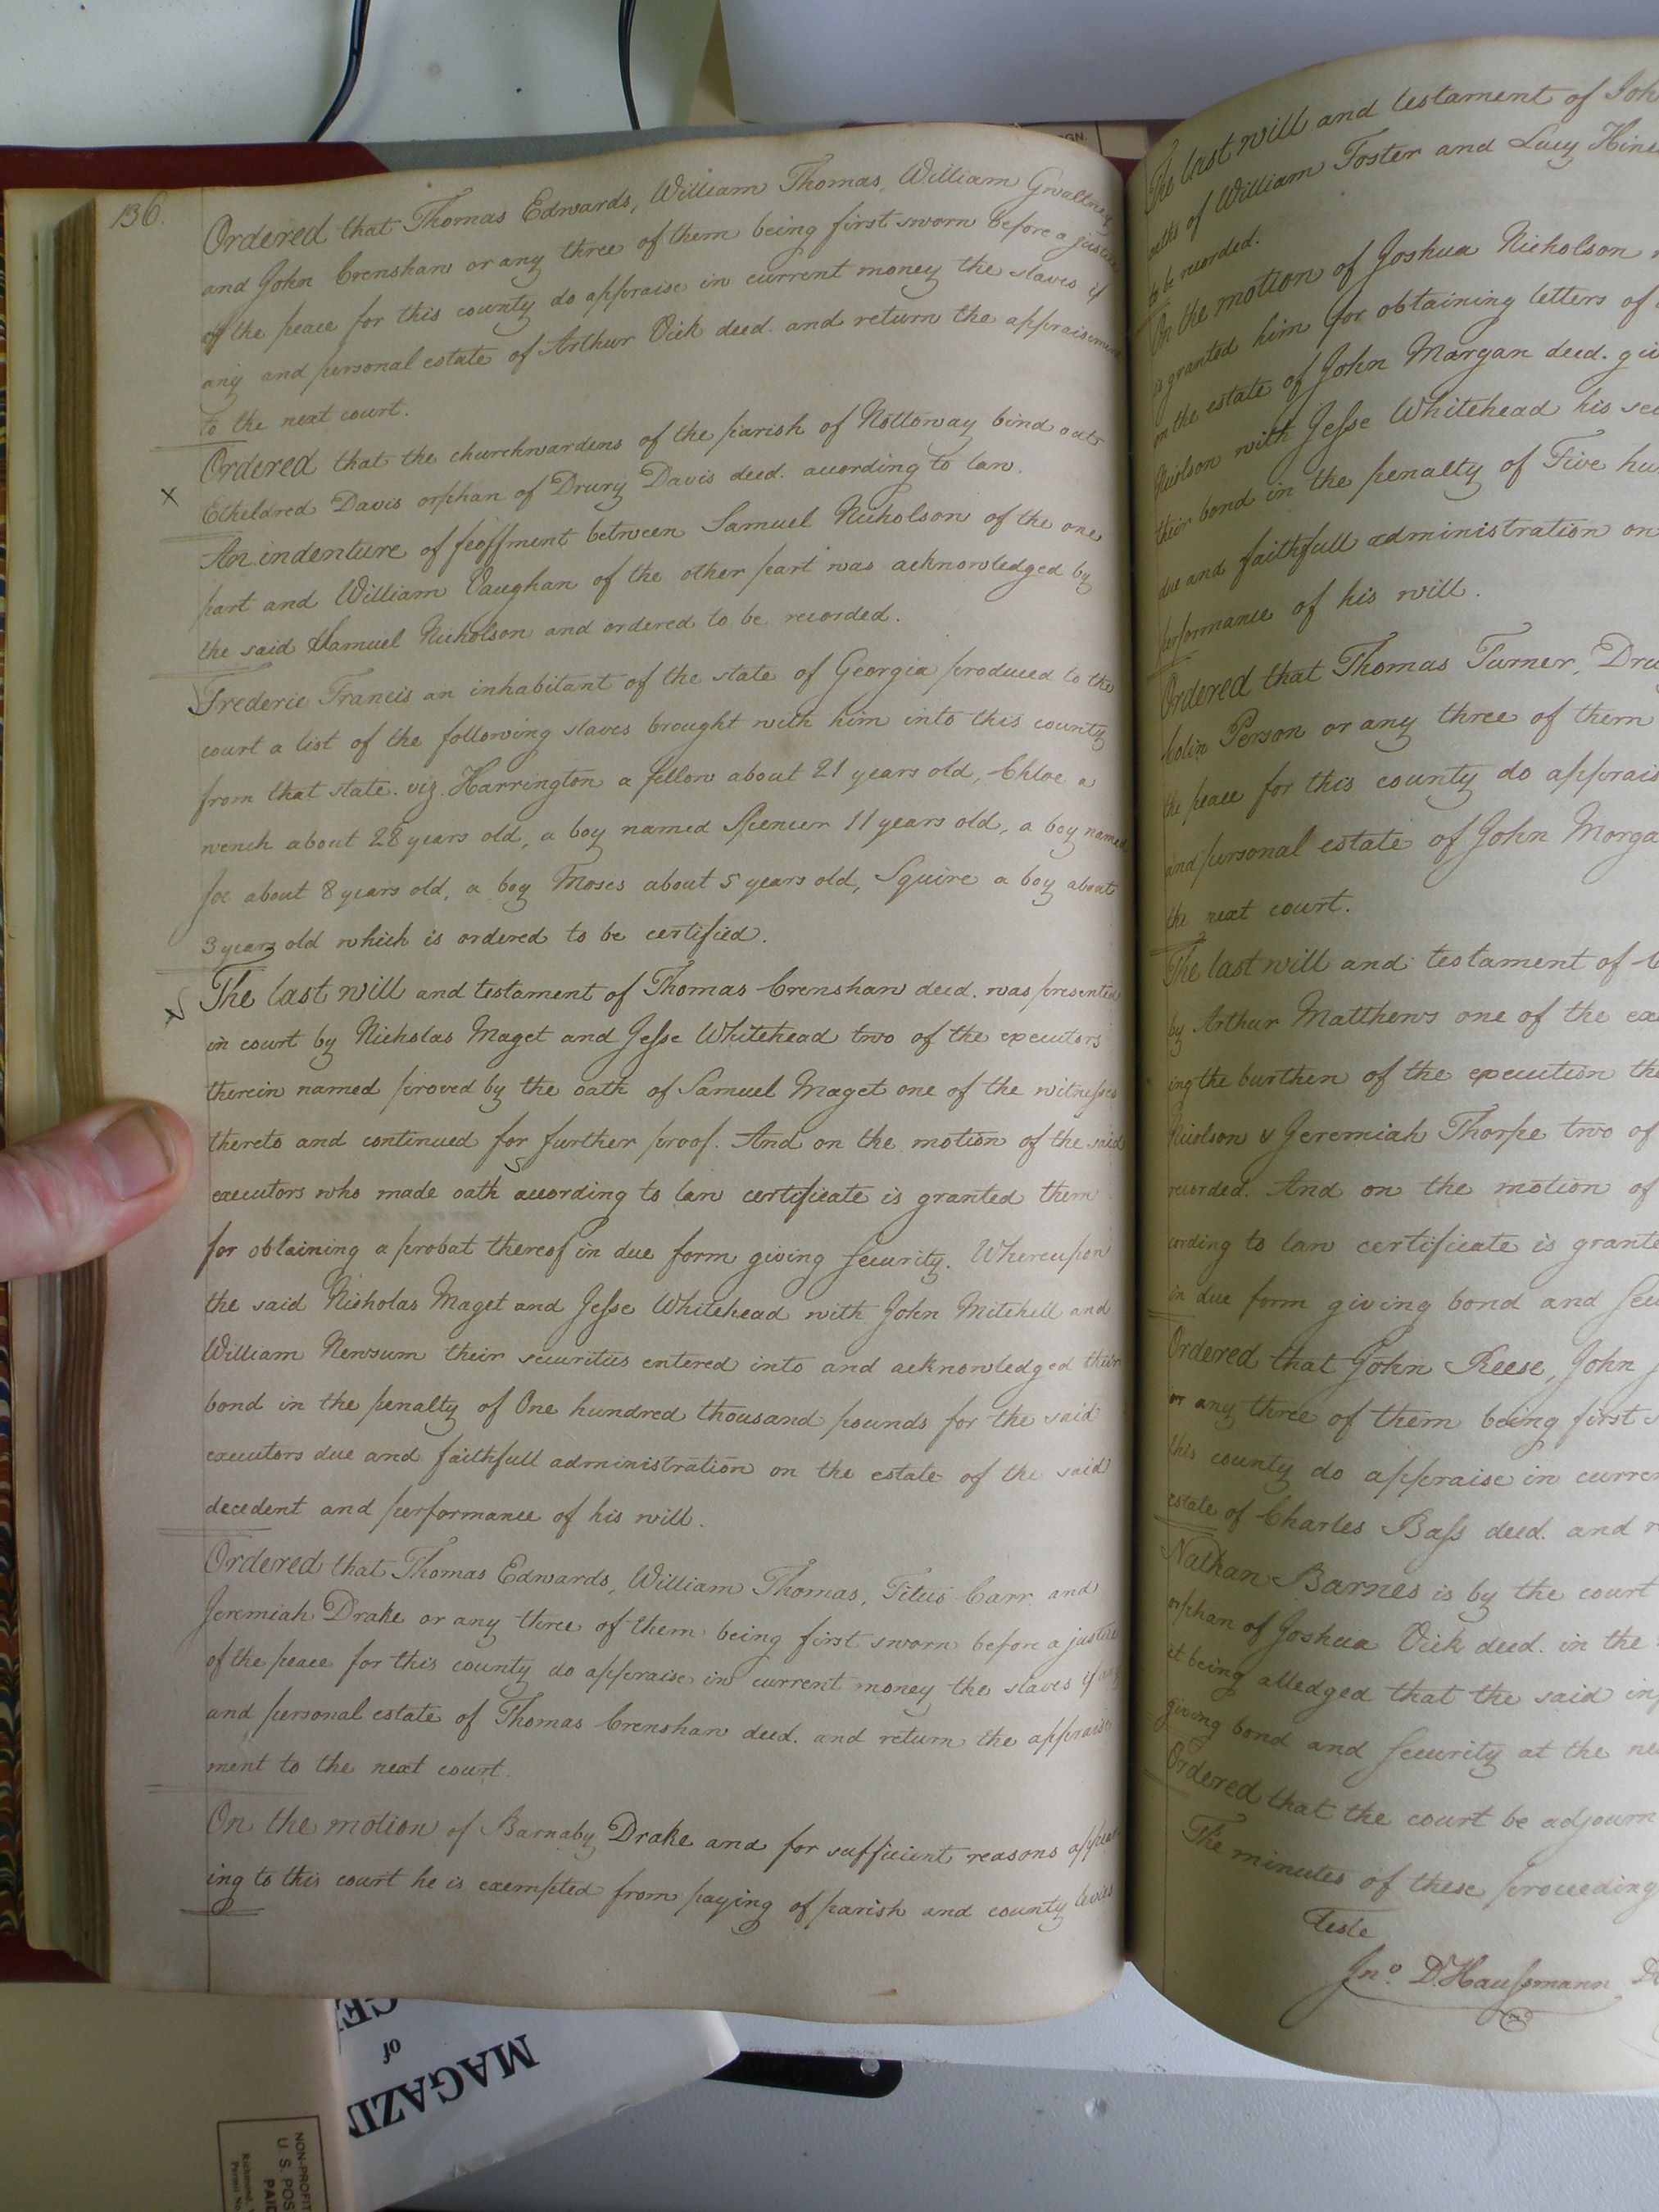 136.
Ordered that Thomas Edwards, William Thomas, William Gwaltney
and John Crenshaw or any three of them being first sworn before a justice
of the peace for this county do appraise in current money the slaves if
any and personal estate of Arthur Vick deed. and return the appraisement
to the next court.
Ordered that the churchwardens of the parish of Nottoway bind out
x Etheldred Davis orphan of Drury Davis deed. according to law.
An indenture of feoffment between Samuel Nicholson of the one
part and William Vaughan of the other part was acknowledged by
the said Samuel Nicholson and ordered to be recorded.
Frederic Francis an inhabitant of the state of Georgia produced to the
court a list of the following slaves brought with him into this county
from that state. viz. Harrington a fellow about 21 years old, Chloe a
wench about 28 years old, a boy named Spencer 11 years old, a boy named
Joe about 8 years old, a boy Moses about 5 years old, Squire a boy about
3 years old which is ordered to be certified.
The last will and testament of Thomas Crenshaw deed. was presented
in court by Nicholas Maget and Jesse Whitehead two of the executors
therein named proved by the oath of Samuel Maget one of the witnesses
thereto and continued for further proof. And on the motion of the said
executors who made oath according to law certificate is granted them
for obtaining a probat thereof in due form giving security. Whereupon
the said Nicholas Maget and Jesse Whitehead with John Mitchell and
William Newsum their securities entered into and acknowledged their
bond in the penalty of One hundred thousand pounds for the said
executors due and faithfull administration on the estate of the said
decedent and performance of his will.
Ordered that Thomas Edwards, William Thomas, Titus Carr and
Jeremiah Drake or any three of them being first sworn before a justice
of the peace for this county do appraise in current money the slaves if any
and personal estate of Thomas Crenshaw deed. and return the appraise
ment to the next court.
On the motion of Barnaby Drake and for sufficient reasons appear
ing to this court he is exempted from paying of parish and county levies
The last will and testament of Joh
oaths of William Foster and Lucy Hine
to be recorded.
On the motion of Joshua Nicholson
is granted him for obtaining letters of
on the estate of John Morgan deed. gi
with Jesse Whitehead his se
their bond in the penalty of Five hu
due and faithfull administration on
performance of his will.
Ordered that Thomas Turner, Dru
Colin Person or any three of them
the peace for this county do apprais
and personal estate of John Morga
the next court.
The last will and testament of C
by Arthur Matthews one of the ex
ing the burthen of the execution th
Nicolson & Jeremiah Thorpe two of
recorded. And on the motion of
cording to law certificate is grante
in due form giving bond and secu
Ordered that John Reese, John
or any three of them being first s
this county do appraise in curren
estate of Charles Bass deed. and r
Nathan Barnes is by the court
orphan of Joshua Vick deed. in the
it being alledged that the said in
giving bond and security at the ne
Ordered that the court be adjourn
The minutes of these proceeding
Teste
Jno. D. Haussmann D
MAGAZI
of
NON-PROFIT
U. S. POS
PAID
Richmond,
Permit No.